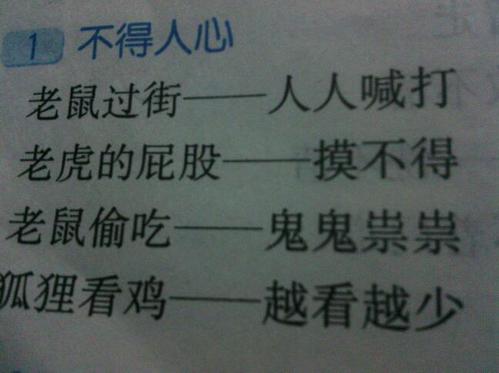 1 不得人心
老鼠过街——人人喊打
老虎的屁股——摸不得
老鼠偷吃——鬼鬼祟祟
狐狸看鸡——越看越少